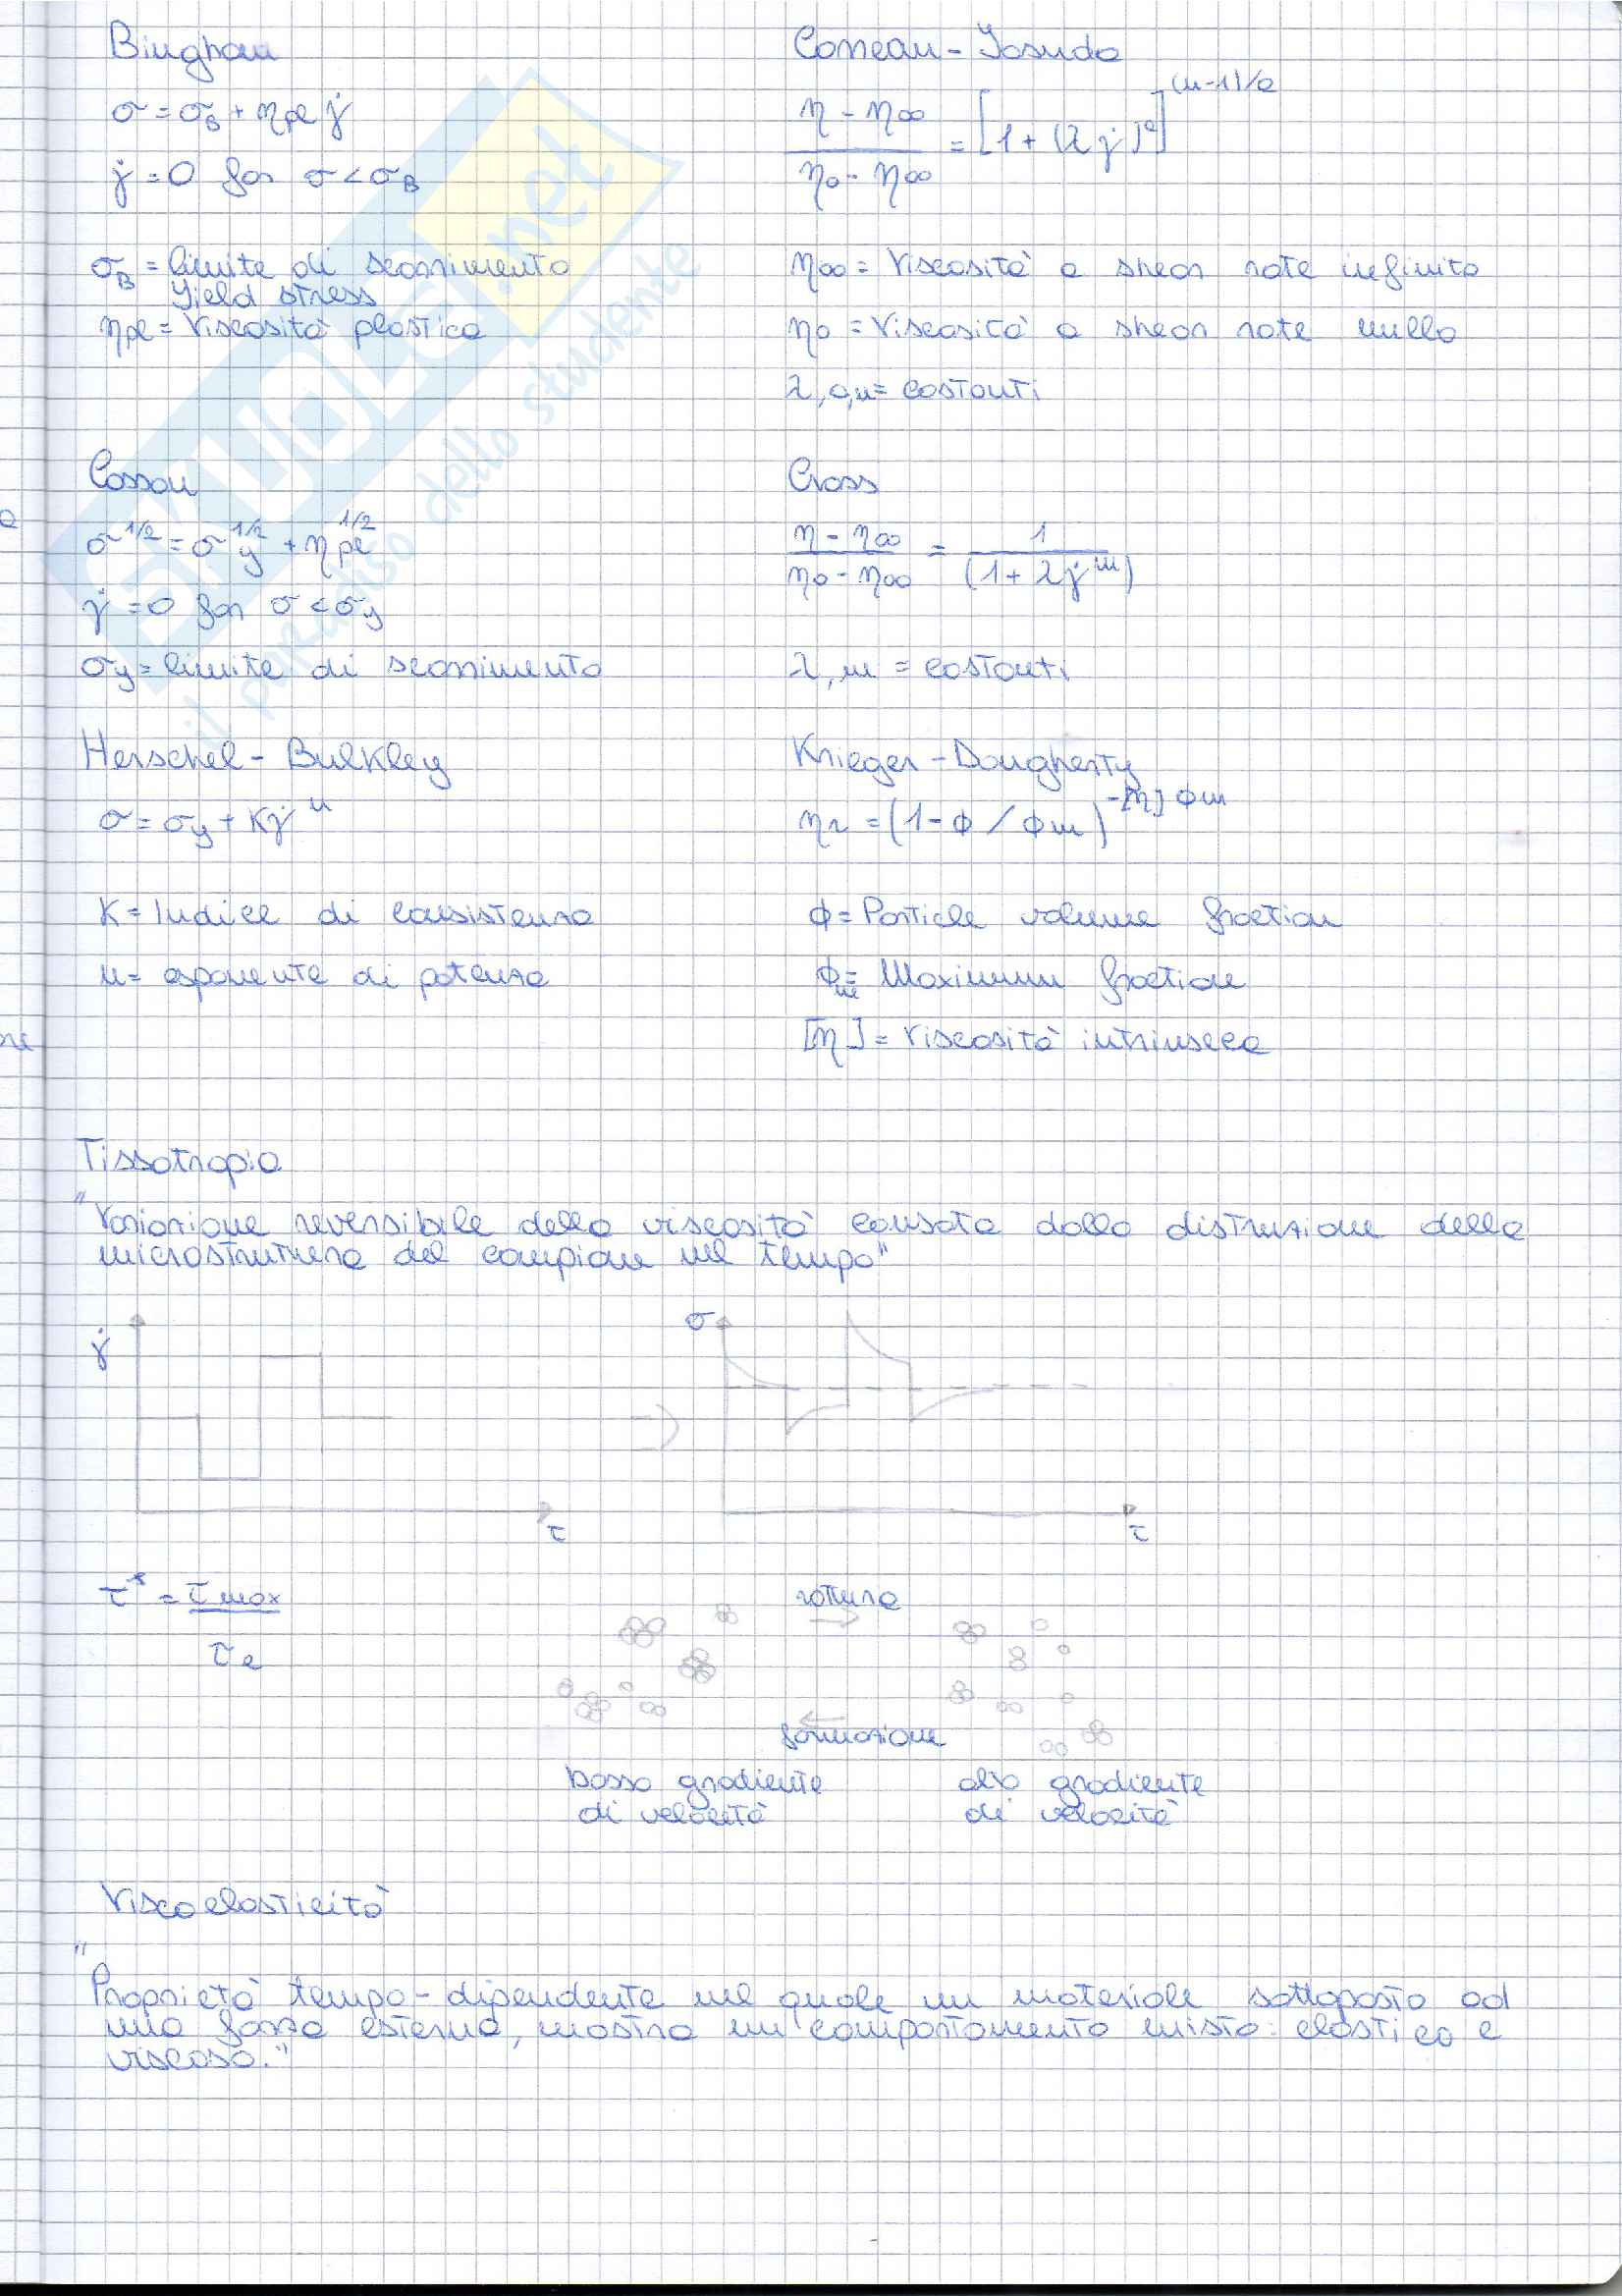 Bingham
σ = σ_B + η_pl γ̇
γ̇ = 0 for σ < σ_B
σ_B = limite di scorrimento
Yield stress
η_pl = Viscosità plastica
Carreau - Yasuda
(η - η∞)/(η0 - η∞) = [1 + (λ γ̇)^a]^((n-1)/a)
η∞ = Viscosità a shear rate infinito
η0 = Viscosità a shear rate nullo
λ, a, n = costanti
Casson
σ^1/2 = σ_y^1/2 + η_pl^1/2
γ̇ = 0 for σ < σ_y
σ_y = limite di scorrimento
Cross
(η - η∞)/(η0 - η∞) = 1/(1 + λγ̇^m)
λ, m = costanti
Herschel - Bulkley
σ = σ_y + Kγ̇^n
K = Indice di consistenza
n = esponente di potenza
Krieger - Dougherty
η_r = (1 - φ / φm)^-[η] φm
φ = Particle volume fraction
φm = Maximum fraction
[η] = Viscosità intrinseca
Tissotropia
"Variazione reversibile della viscosità causata dalla distruzione della
microstruttura del campione nel tempo"
γ̇
τ
σ
τ
τ* = τmax
τe
rottura
formazione
basso gradiente
di velocità
alto gradiente
di velocità
Viscoelasticità
"Proprietà tempo-dipendente nel quale un materiale sottoposto ad
una forza esterna, mostra un comportamento misto: elastico e
viscoso."
SKUOLA.net
il paradiso dello studente